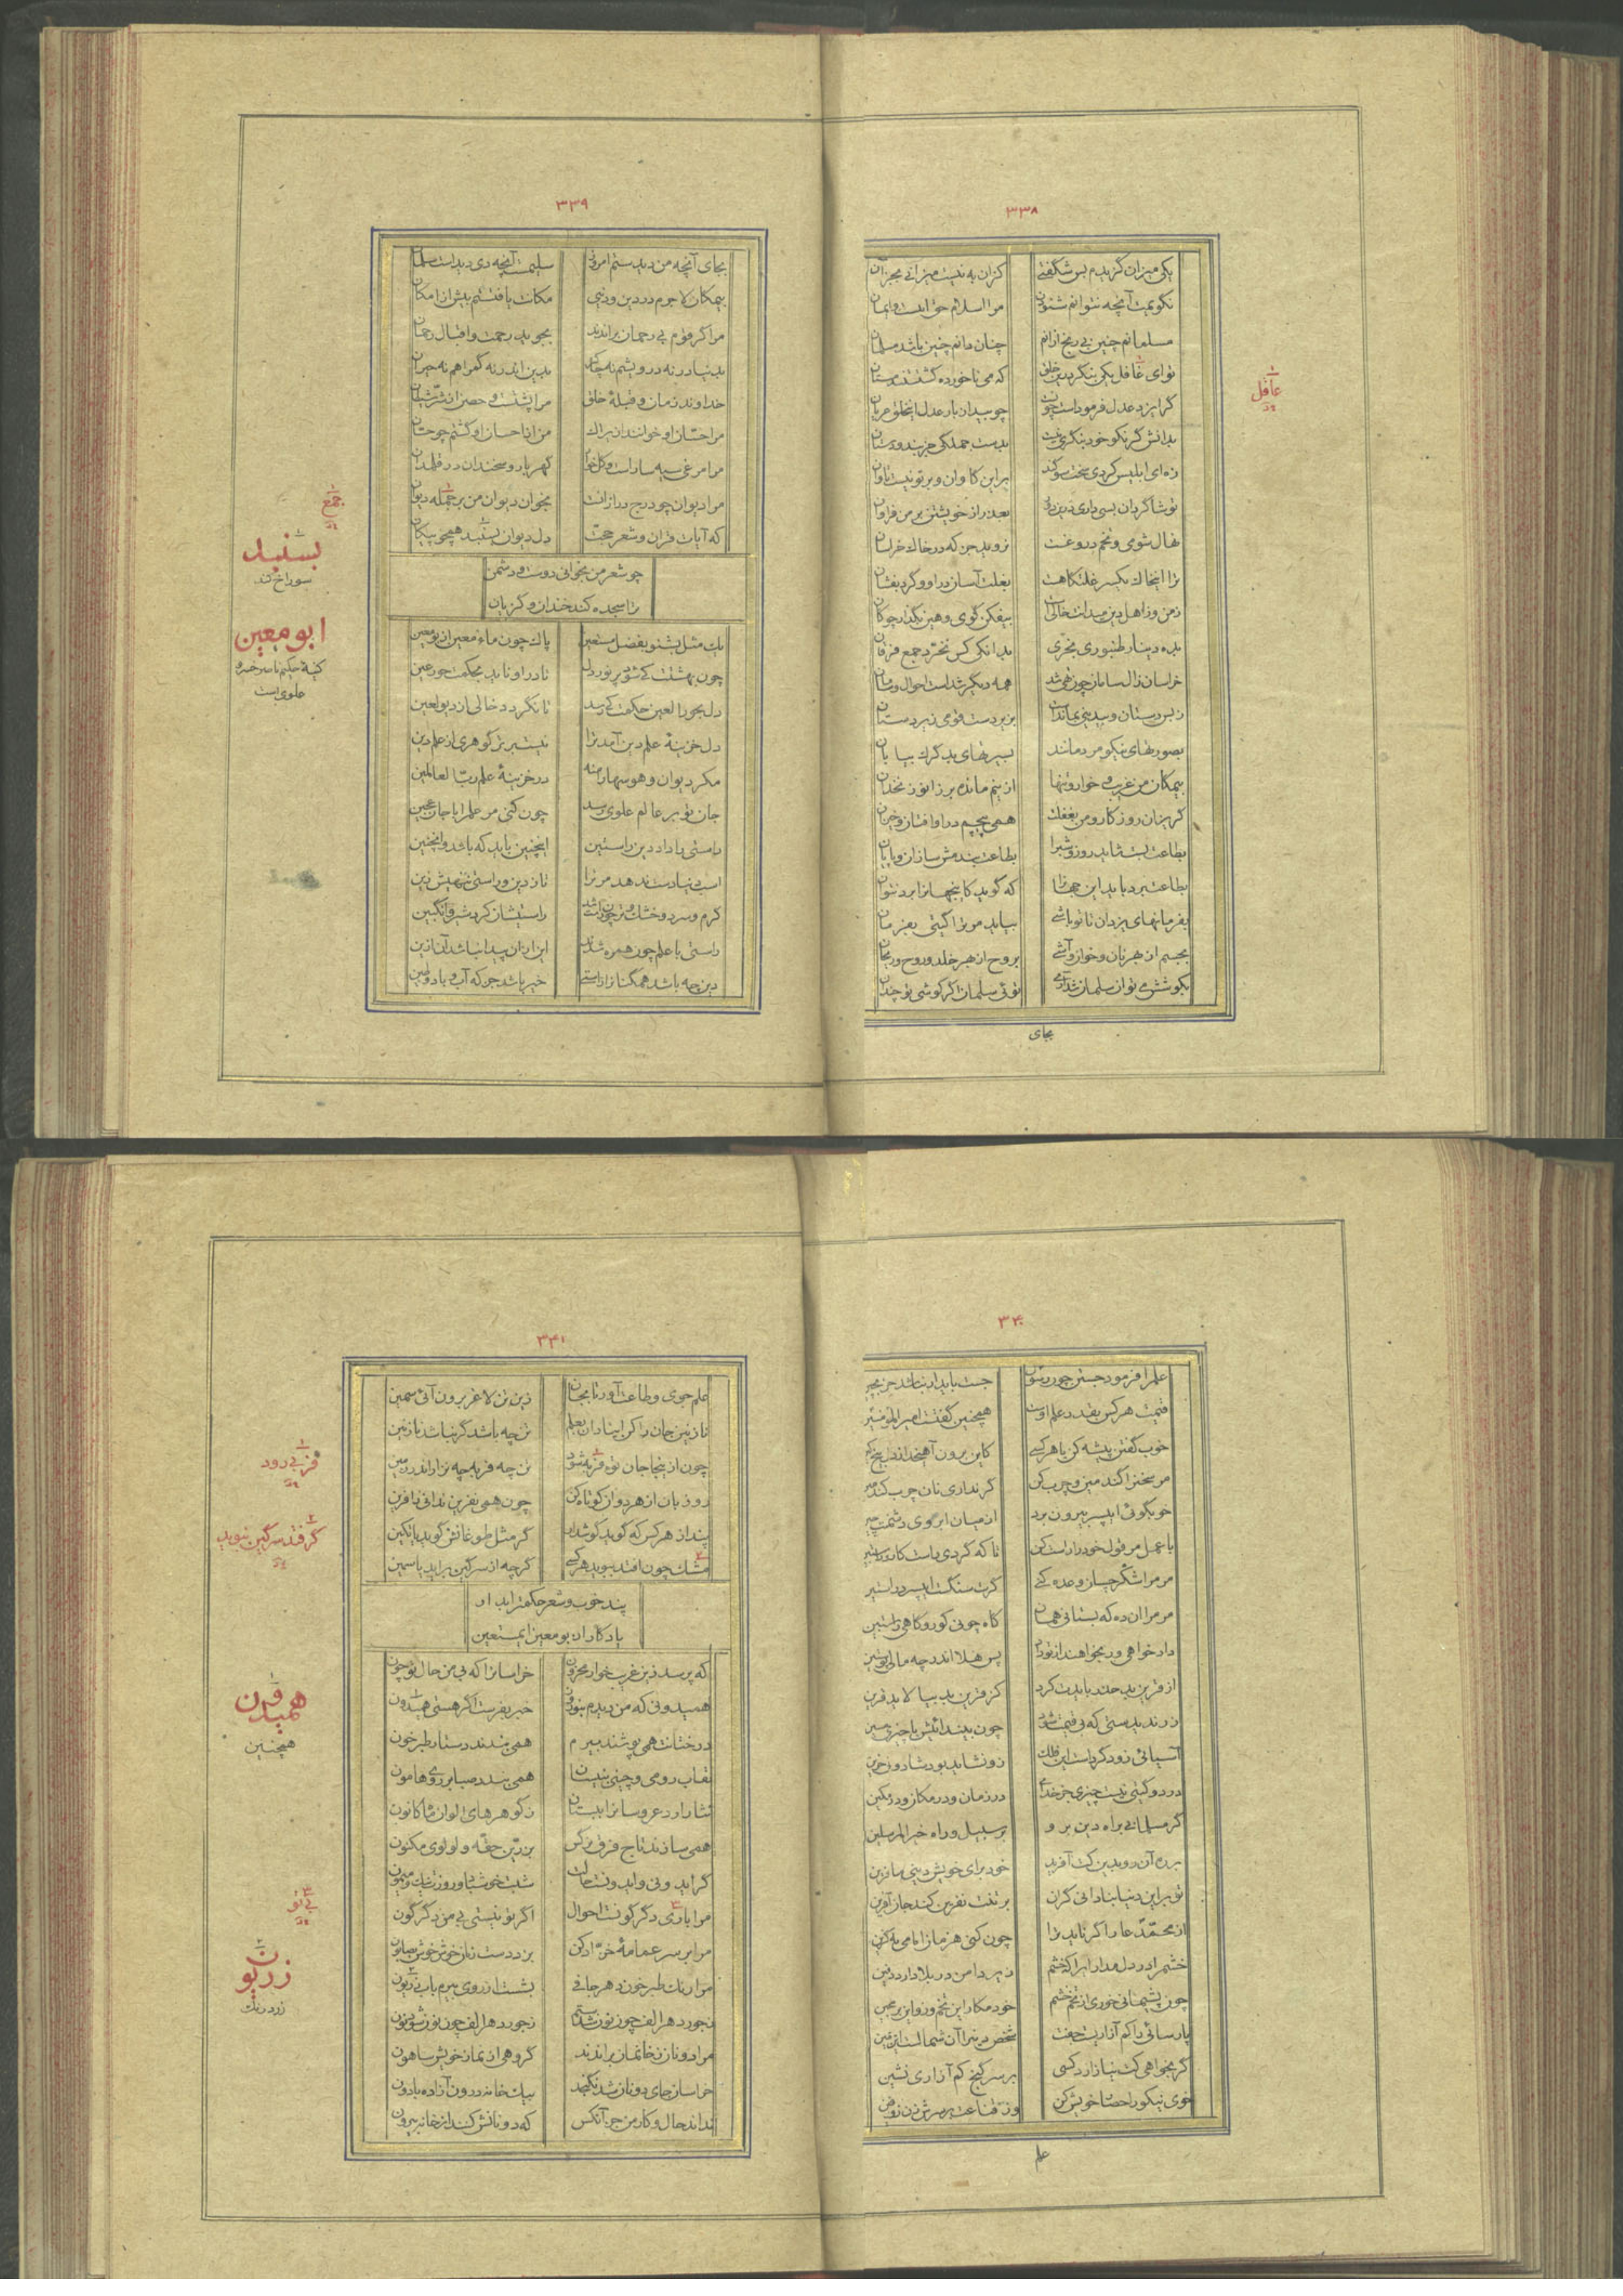 ۳۳۸
یکی میزان گزیدم بس شگفتی
کزان به نیست میزانی بجز آن
نگویمت آنچه نتوانم شنودن
مرا اسلام حق اینست و ایمان
مسلمانم چنین بی رنج ازانم
چنان دانم چنین باشد مسلمان
توای غافل یکی بنگر بدین خلق
که می ناخورده گشتند مستان
گر ایزد عدل فرمود است چون
چو بیدادی بدانش گر نکو خود بنگری نیست
بدست جملگی جز بند و دستان
زه ای ابلیس کردی سخت سوگند
برین کاوان و بر تو نیست تاوان
نهال شومی و تخم دروغت
نروید جز که در خاک خراسان
ترا اینخاک یکسر غلتگاهت
بغلت آسان دراو و گرد بفشان
زمن وز اهل دین میدانت خالی
بیفکن گوی و هین بگذار چوگان
بده دینار طنبوری بخری
بدانگی کس نخرد جمع فرقان
همه دیگر شد است احوال و سامان
بصورتهای نیکو مردمانند
بسیرتهای بد گرگ بیابان
بیمکان من غریب و خوار و تنها
ازینم مانده بر زانو زنخدان
گریزان روزگار و من بغفلت
همی پیچم دراو افتان و خیزان
بطاعت بست شاید روز و شب را
بطاعت بند مش سازان و پایان
بطاعت برد باید این جهانرا
که گوید کاینجهانرا برد نتوان
بفرمانهای یزدان تا نوباشی
بیاید مر ترا گیتی بفرمان
بکوشش می توان سلمان شد آری
توئی سلمان اگر کوشی تو چندان
عافل
بجای
۳۳۹
بجای آنچه من دیدستم امروز
سلیمست آنچه دی دیدست سلمان
بیمکان لاجرم در دین و دنیی
مکانت یافتستم بیش از امکان
مرا گر قوم بی رحمان براندند
بجوید رحمت و اقبال رحمان
بدنیا در نه درویشم نه چاکر
بدین اندر نه گمراهم نه حیران
خداوند زمان و قبلهٔ خلق
مرا پشتست و حصن از شر شیطان
من از احسان او گشتم چو حسان
مرا مرغی سیه ساراست و گلخوار
گهربار و سخندان در قلمدان
مرا دیوان چو درج در ازانست
بخوان دیوان من بر جمله دیوان
که آیات قران و شعر حجت
دل دیوان بسنبد همچو پیکان
چو شعر من بخوانی دوست و دشمن
ترا سجده کند خندان و گریان
یک مثل بشنو بفضل مستعین
پاک چون ماء معین از بو معین
چون بهشتست کی شود پر نور دل
تا در او ناید بحکمت حور عین
دل بحور العین حکمت کی رسد
تا نگردد خالی از دیو لعین
دل خزینهٔ علم دین آمد ترا
نیست برتر گوهری از علم دین
مکر دیوان و هوسها را منه
در خزینهٔ علم رب العالمین
جان تو بر عالم علوی رسد
چون کنی مر علم را با جان عجین
راستی باداد دین راستین
اینچنین باید که باشد و اینچنین
اسب دنیا دست ندهد مر ترا
تا ز دین و راستی ننهیش زین
راستی با علم چون همره شدند
این ازان پیدا نباشد آن ازین
جمع
بسنبد
سوراخ کند
ابو معین
کنیهٔ حکیم ناصر خسرو
علوی است
۳۴۰
قیمت هر کس بقدر علم اوست
همچنین گفتست امیر المؤمنین
خوب گفتن پیشه کن با هر کسی
کاین برون آهنجد از دل بیخ کین
مر سخن را گندمین و چرب کن
گر نداری نان چرب گندمین
خوبگوئی ای پسر بیرون برد
از میان ابروی دشمنت چین
با عمل مر قول خود را راست کن
تا که گردی راست کار و راستین
مر مرا شکر چسان وعده کنی
گرت سنگست ای پسر در آستین
مر مرا آن ده که بستانی همان
گاه چونی کور و گاهی دوربین
داد خواهی ور بخواهند از تو داد
پس هلا اندر چه مالی پوستین
کز قرین بد بیالاید قرین
آسیائی زود گرد است این فلک
زو نشاید بود شاد و نه حزین
در دو گیتی نیست چیزی جز خدای
در زمان و در مکان و در مکین
گر مسلمانی براه دین برو
بر سبیل و راه خیر المرسلین
بره آن رو بدین کت آفرید
خود برای خویش دینی مافرین
تو بر این دنیا بنادانی گران
بر تنت نفرین کند جان آفرین
از محمد عار اگر ناید ترا
خشم را در دل مدار ایرا که خشم
زیر دامن در بلا دارد دفین
چون پشیمانی خوری از تخم خشم
خود مکار این تخم و زو این بر مچین
گر بخواهی کت نیازارد کسی
بر سر گنج کم آزاری نشین
خوی نیکو را حصار خویش کن
وز قناعت بر سرش زن زوفرین
علم
۳۴۱
علم جوی و طاعت آور تا بجان
زین تن لاغر برون آئی سمین
نازنین جان را کن ای نادان بعلم
تن چه باشد گر نباشد نازنین
چون از اینجا جان تو فربه شود
تن چه فربه چه نزار اندر زمین
رو زبان از هر دوان کوتاه کن
چون همی نفرین ندانی ز آفرین
پند از هر کس که گوید گوش دار
گر مثل طوغانش گوید یا تکین
مشک چون افتد ببوید هر کسی
گرچه از سرگین براید یاسمین
پند خوب و شعر حکمت را بدار
یادگار از بو معین ای مستعین
که پرسد زین غریب خوار محزون
خراسانرا که بی من حال تو چون
همیدونی که من دیدم بنوروز
خبر بفرست اگر هستی همیدون
درختانت همی پوشند بیرم
همی بندند دستار طبرخون
نقاب رومی و چینی بنیسان
همی بندد صبا بر روی هامون
نثار آرد عروسان را ببستان
ز گوهرهای الوان ماه کانون
همی سازند تاج فرق نرگس
بزرین حقه و لولوی مکنون
گر ایدونی و ایدونست حالت
شبت خوش باد و روزت نیک و میمون
مرا باری دگرگونست احوال
اگر تو نیستی بی من دگرگون
مرا بر سر عمامهٔ خز ادکن
بزد دست زمان خوش خوش بصابون
مرا رنگ طبرخون دهر جافی
بشست از روی بیرم باب زریون
ز جور دهر الف چون نون شدستم
ز جور دهر الف چون نون شود نون
مرا دونان ز خان و مان براندند
گروهی از نماز خویش ساهون
خراسان جای دونان شد نگنجد
بیک خانه درون آزاده با دون
نداند حال و کار من جز آنکس
که دونانش کنند از خانه بیرون
فربی رود
گر فتد سرگین ببوید
همیدون
همچنین
بی تو
زریون
زرد رنگ